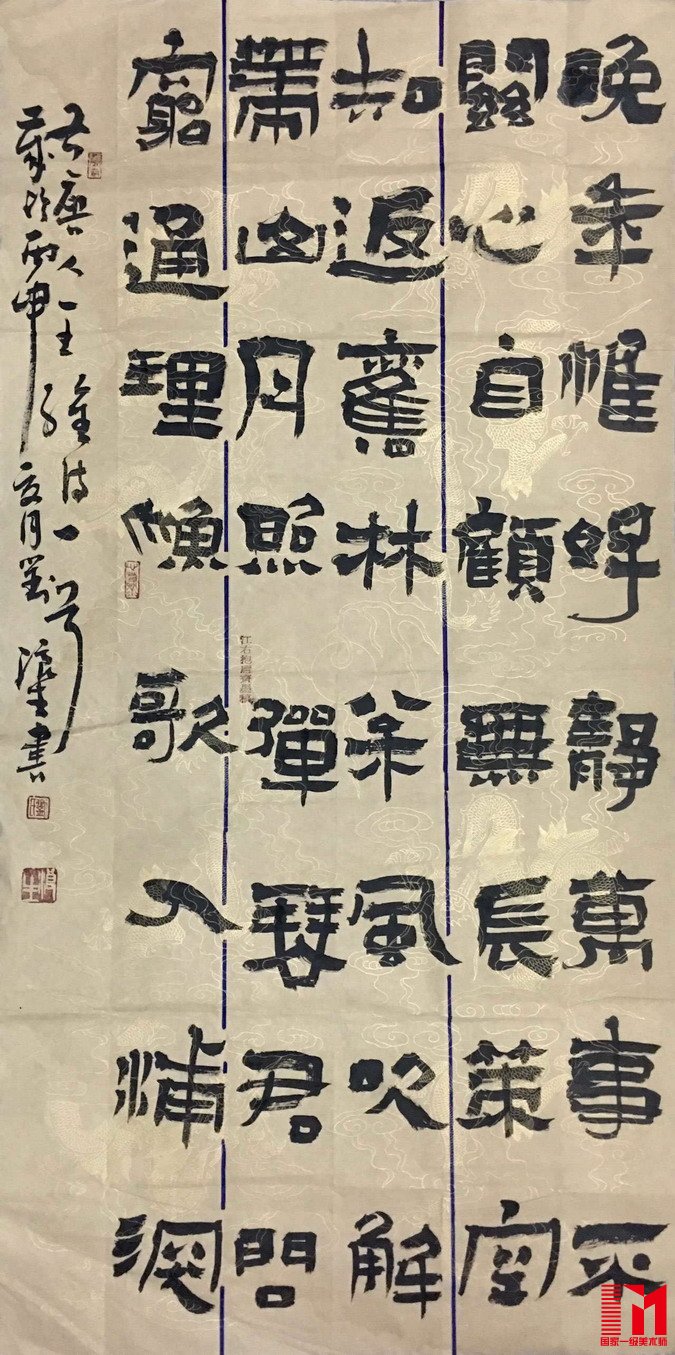 晚年惟好靜萬事不
關心自顧無長策空
知返舊林松風吹解
帶山月照彈琴君問
窮通理漁歌入浦深
右唐人王維詩一首
歲次丙申夏月劉書
国家一级美术师